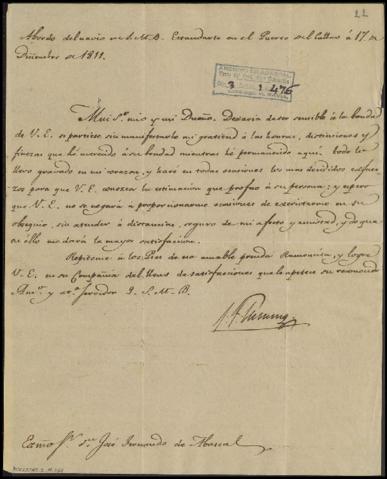 Abordo del navio de S.M.B. Estandarte en el Puerto del Callao á 17 de
Diciembre de 1811.
3 1 476
Mui Sor. mio y mi Dueño. Dexaria de ser sensible á la bondad
de V.E. si partiese sin manifestarle mi gratitud á las honras, distinciones y
finezas que hé merecido á su bondad mientras hé permanecido aqui. todo lo
llevo gravado en mi corazon, y haré en todas ocasiones los mas decididos esfuerzos
para que V.E. conozca la estimacion que profeso á su persona; y espero
que V.E. no se negará á proporcionarme ocasiones de exercitarme en su
obsequio, sin atender á distancias, seguro de mi afecto y amistad, y de que
en ello me dará la mayor satisfaccion.
Repitome á los Pies de su amable prenda Ramoncita, y logre
V.E. en su Compañia del lleno de satisfacciones que le apetece su reconocido
Amo. y servidor Q.S.M.B.
Fleming
Exmo Sr. Dn José Fernando de Abascal